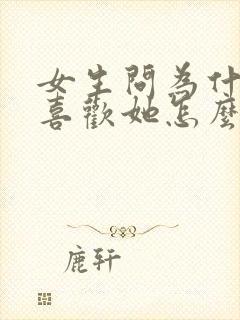 女生問為什
喜歡她怎麼
鹿轩